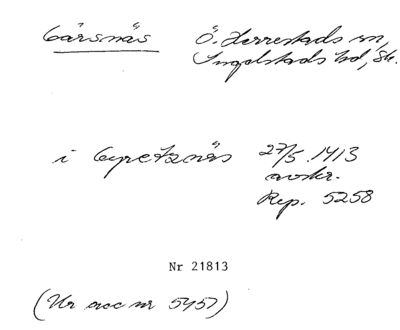 Gärsnäs Ö. Herrestads sn,
Ingelstads hd, Sk.
i Gyretznäs 27/5 1413
avskr.
Rep. 5258
Nr 21813
(Ur acc nr 5457)